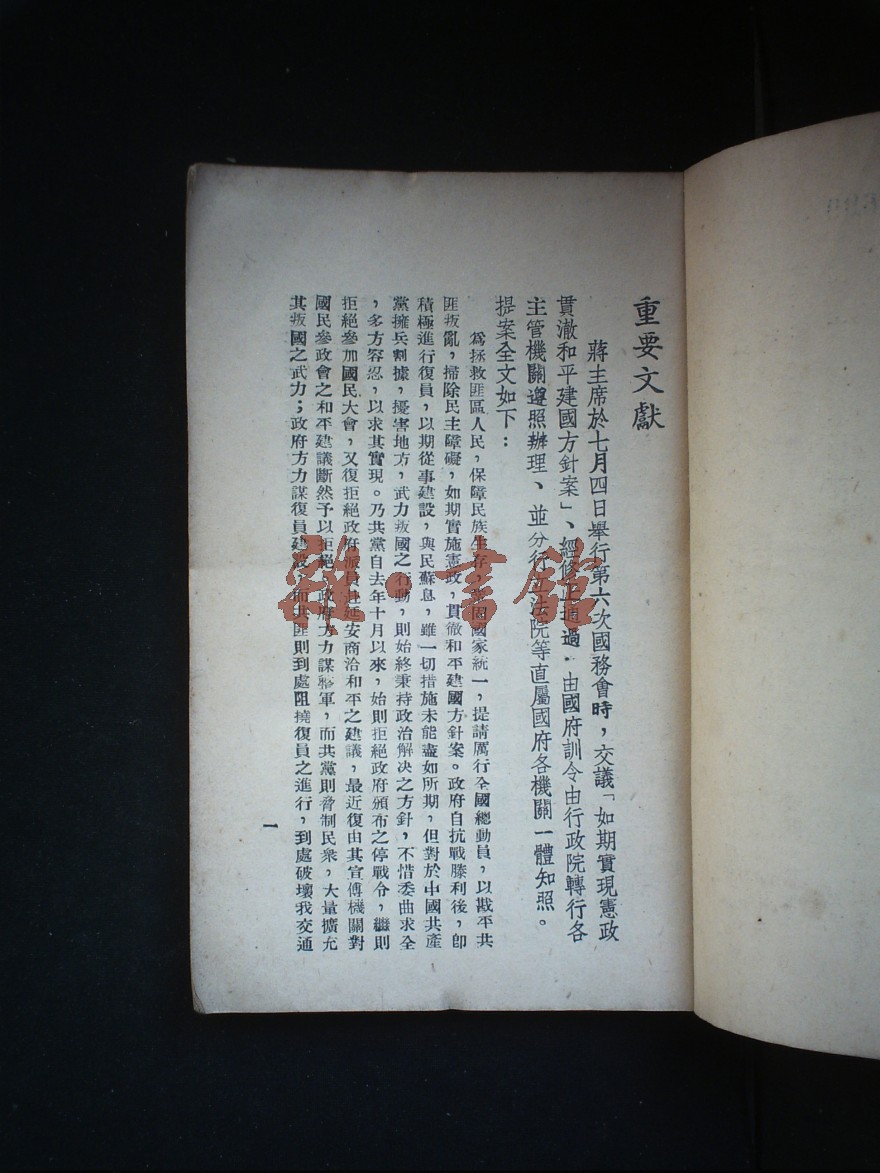 重要文獻
蔣主席於七月四日舉行第六次國務會時，交議「如期實現憲政
貫澈和平建國方針案」、經修正通過．由國府訓令由行政院轉行各
主管機關遵照辦理、並分行法院等直屬國府各機關一體知照。
提案全文如下：
爲拯救匪區人民，保障民族生存，鞏固國家統一，提請厲行全國總動員，以戡平共
匪叛亂，掃除民主障礙，如期實施憲政，貫徹和平建國方針案。政府自抗戰勝利後，卽
積極進行復員，以期從事建設，與民蘇息，雖一切措施未能盡如所期，但對於中國共產
黨擁兵割據，擾害地方，武力叛國之行動，則始終秉持政治解决之方針，不惜委曲求全
，多方容忍，以求其實現。乃共黨自去年十月以來，始則拒絕政府頒布之停戰令，繼則
拒絕參加國民大會，又復拒絕政府派員赴延安商洽和平之建議，最近復由其宣傳機關對
國民參政會之和平建議斷然予以拒絕，政府方力謀整軍，而共黨則脅制民衆，大量擴充
其叛國之武力；政府方力謀復員建設，而共匪則到處阻撓復員之進行，到處破壞我交通
一
書館